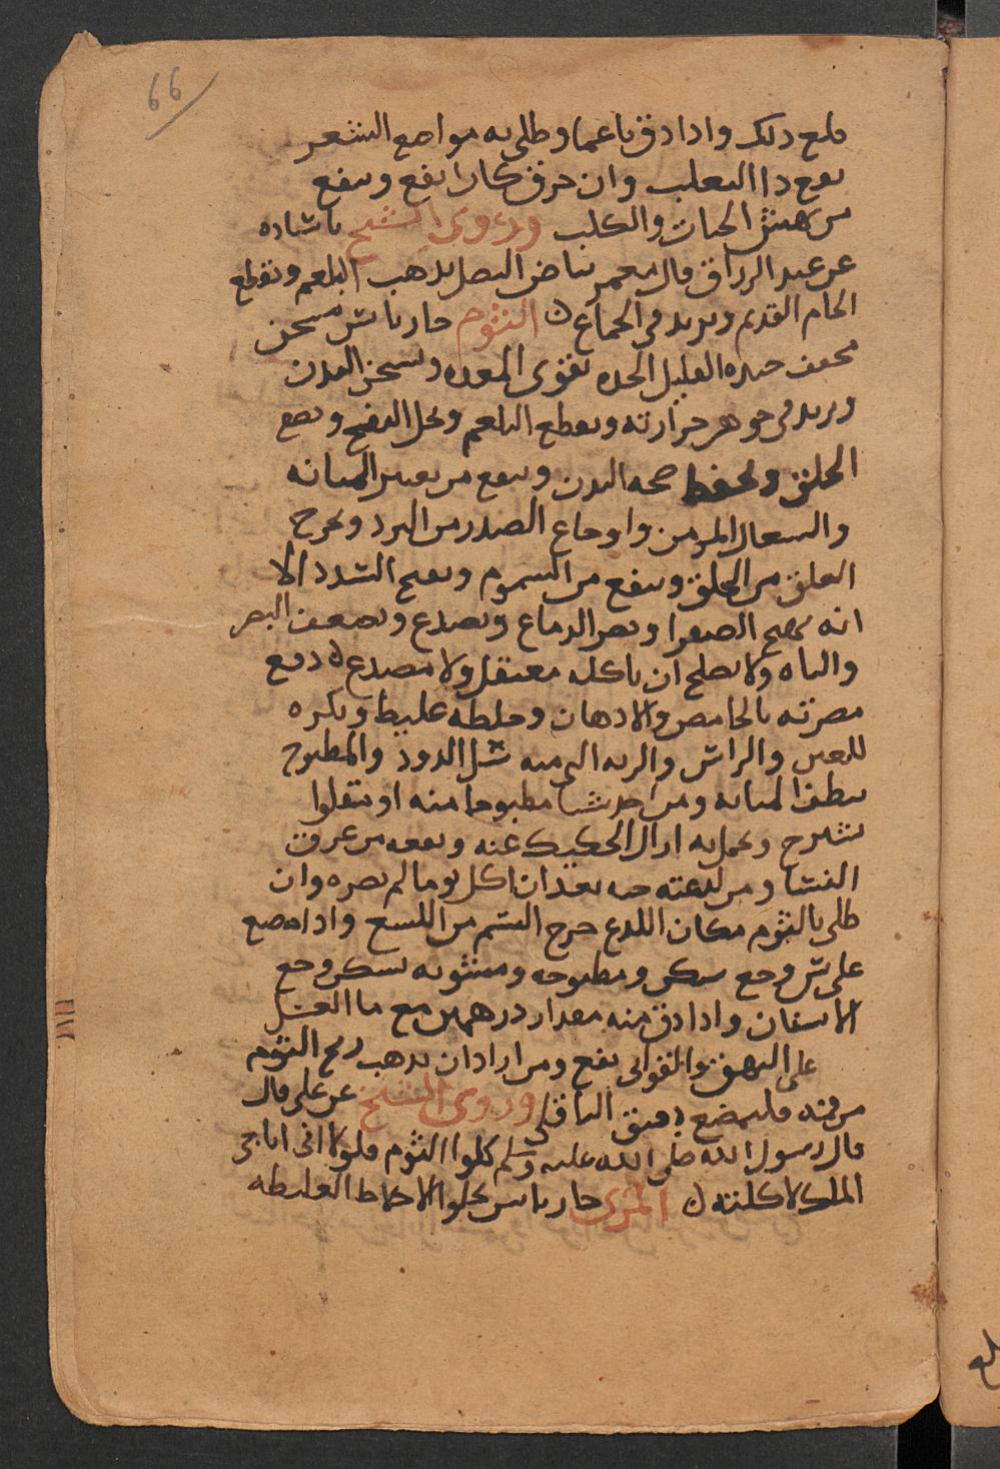 66
قلع ذلك واذا دق ناعما وطلي به مواضع الشعر
نفع داا الثعلب وان حرق كان انفع وينفع
من نهش الحيات والكلب وروى الشيخ باسناده
عن عبد الرزاق قال معمر بياض البصل يذهب البلغم ويقطع
الخام القديم ويزيد في الجماع الثوم حار يابس مسخن
مجفف جيده القليل الحده يقوى المعده ويسخن البدن
ويزيد في جوهر حرارته ويقطع البلغم ويحل النفخ ويصفي
الحلق ويحفظ صحه البدن وينفع من تغير المياه
والسعال المزمن واوجاع الصدر من البرد ويخرج
العلق من الحلق وينفع من السموم ويفتح السدد الا
انه يهيج الصفرا ويضر الدماغ ويصدع ويضعف البصر
والباه ولا يصلح ان ياكله معتقل ولا مصدع دفع
مضرته بالحامض والادهان وخلطه غليظ ويكره
للعين والراس والريه البري منه مثل الدود والمطبوخ
المثانه ومن شيا مطبوخا منه او مقلوا
بشيرج وتحمل به ازال الحكيك عنه ونفعه من عرق
النسا ومن لدغته حيه بعد ان اكل ثوما لم يضره وان
طلي بالثوم مكان اللدع خرج السم من اللسع واذا وضع
على ضرس وجع سكن ومطبوخه ومشويه يسكن وجع
الاسنان واذا دق منه مقدار درهمين مع ما العسل
على البهق والقوابى نفع ومن اراد ان يذهب ريح الثوم
من فمه فليمضغ دقيق الباقلى وروى الشيخ عن علي قال
قال رسول الله صلى الله عليه وسلم كلوا الثوم فلولا انى اناجى
الملك لاكلته المرى حار يابس يجلوا الاخلاط الغليظه